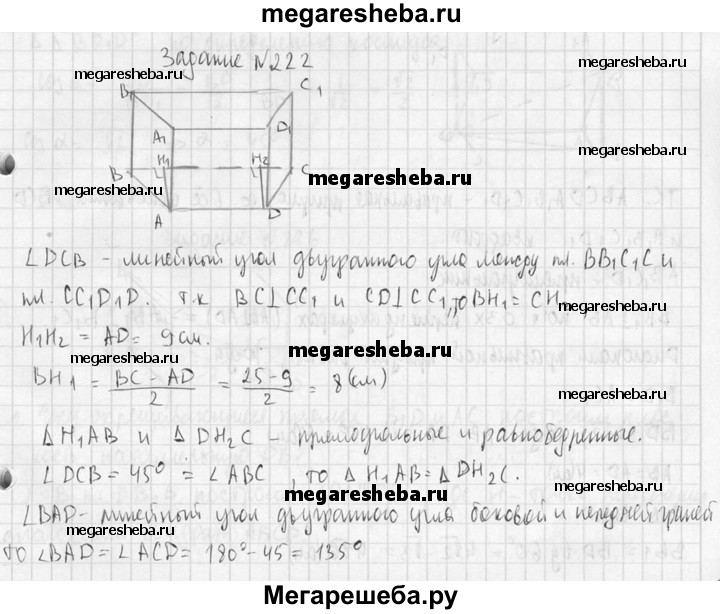 megaresheba.ru
Задание №222
megaresheba.ru
megaresheba.ru
B₁ C₁
A₁ D₁
megaresheba.ru
H₁ H₂
B C
megaresheba.ru
megaresheba.ru
A D
∠DCB - линейный угол двугранного угла между пл. BB₁C₁C и
пл. CC₁D₁D. т.к BC⊥CC₁ и CD⊥CC₁, то BH₁ = CH₂
H₁H₂ = AD = 9 см.
megaresheba.ru
BH₁ = (BC - AD)/2 = (25-9)/2 = 8 (см)
megaresheba.ru
△H₁AB и △DH₂C - прямоугольные и равнобедренные.
megaresheba.ru
∠DCB = 45° = ∠ABC, то △H₁AB = △DH₂C.
megaresheba.ru
∠BAD - линейный угол двугранного угла боковой и передней граней
megaresheba.ru
megaresheba.ru
то ∠BAD = ∠ACD = 180° - 45 = 135°
Мегарешеба.ру